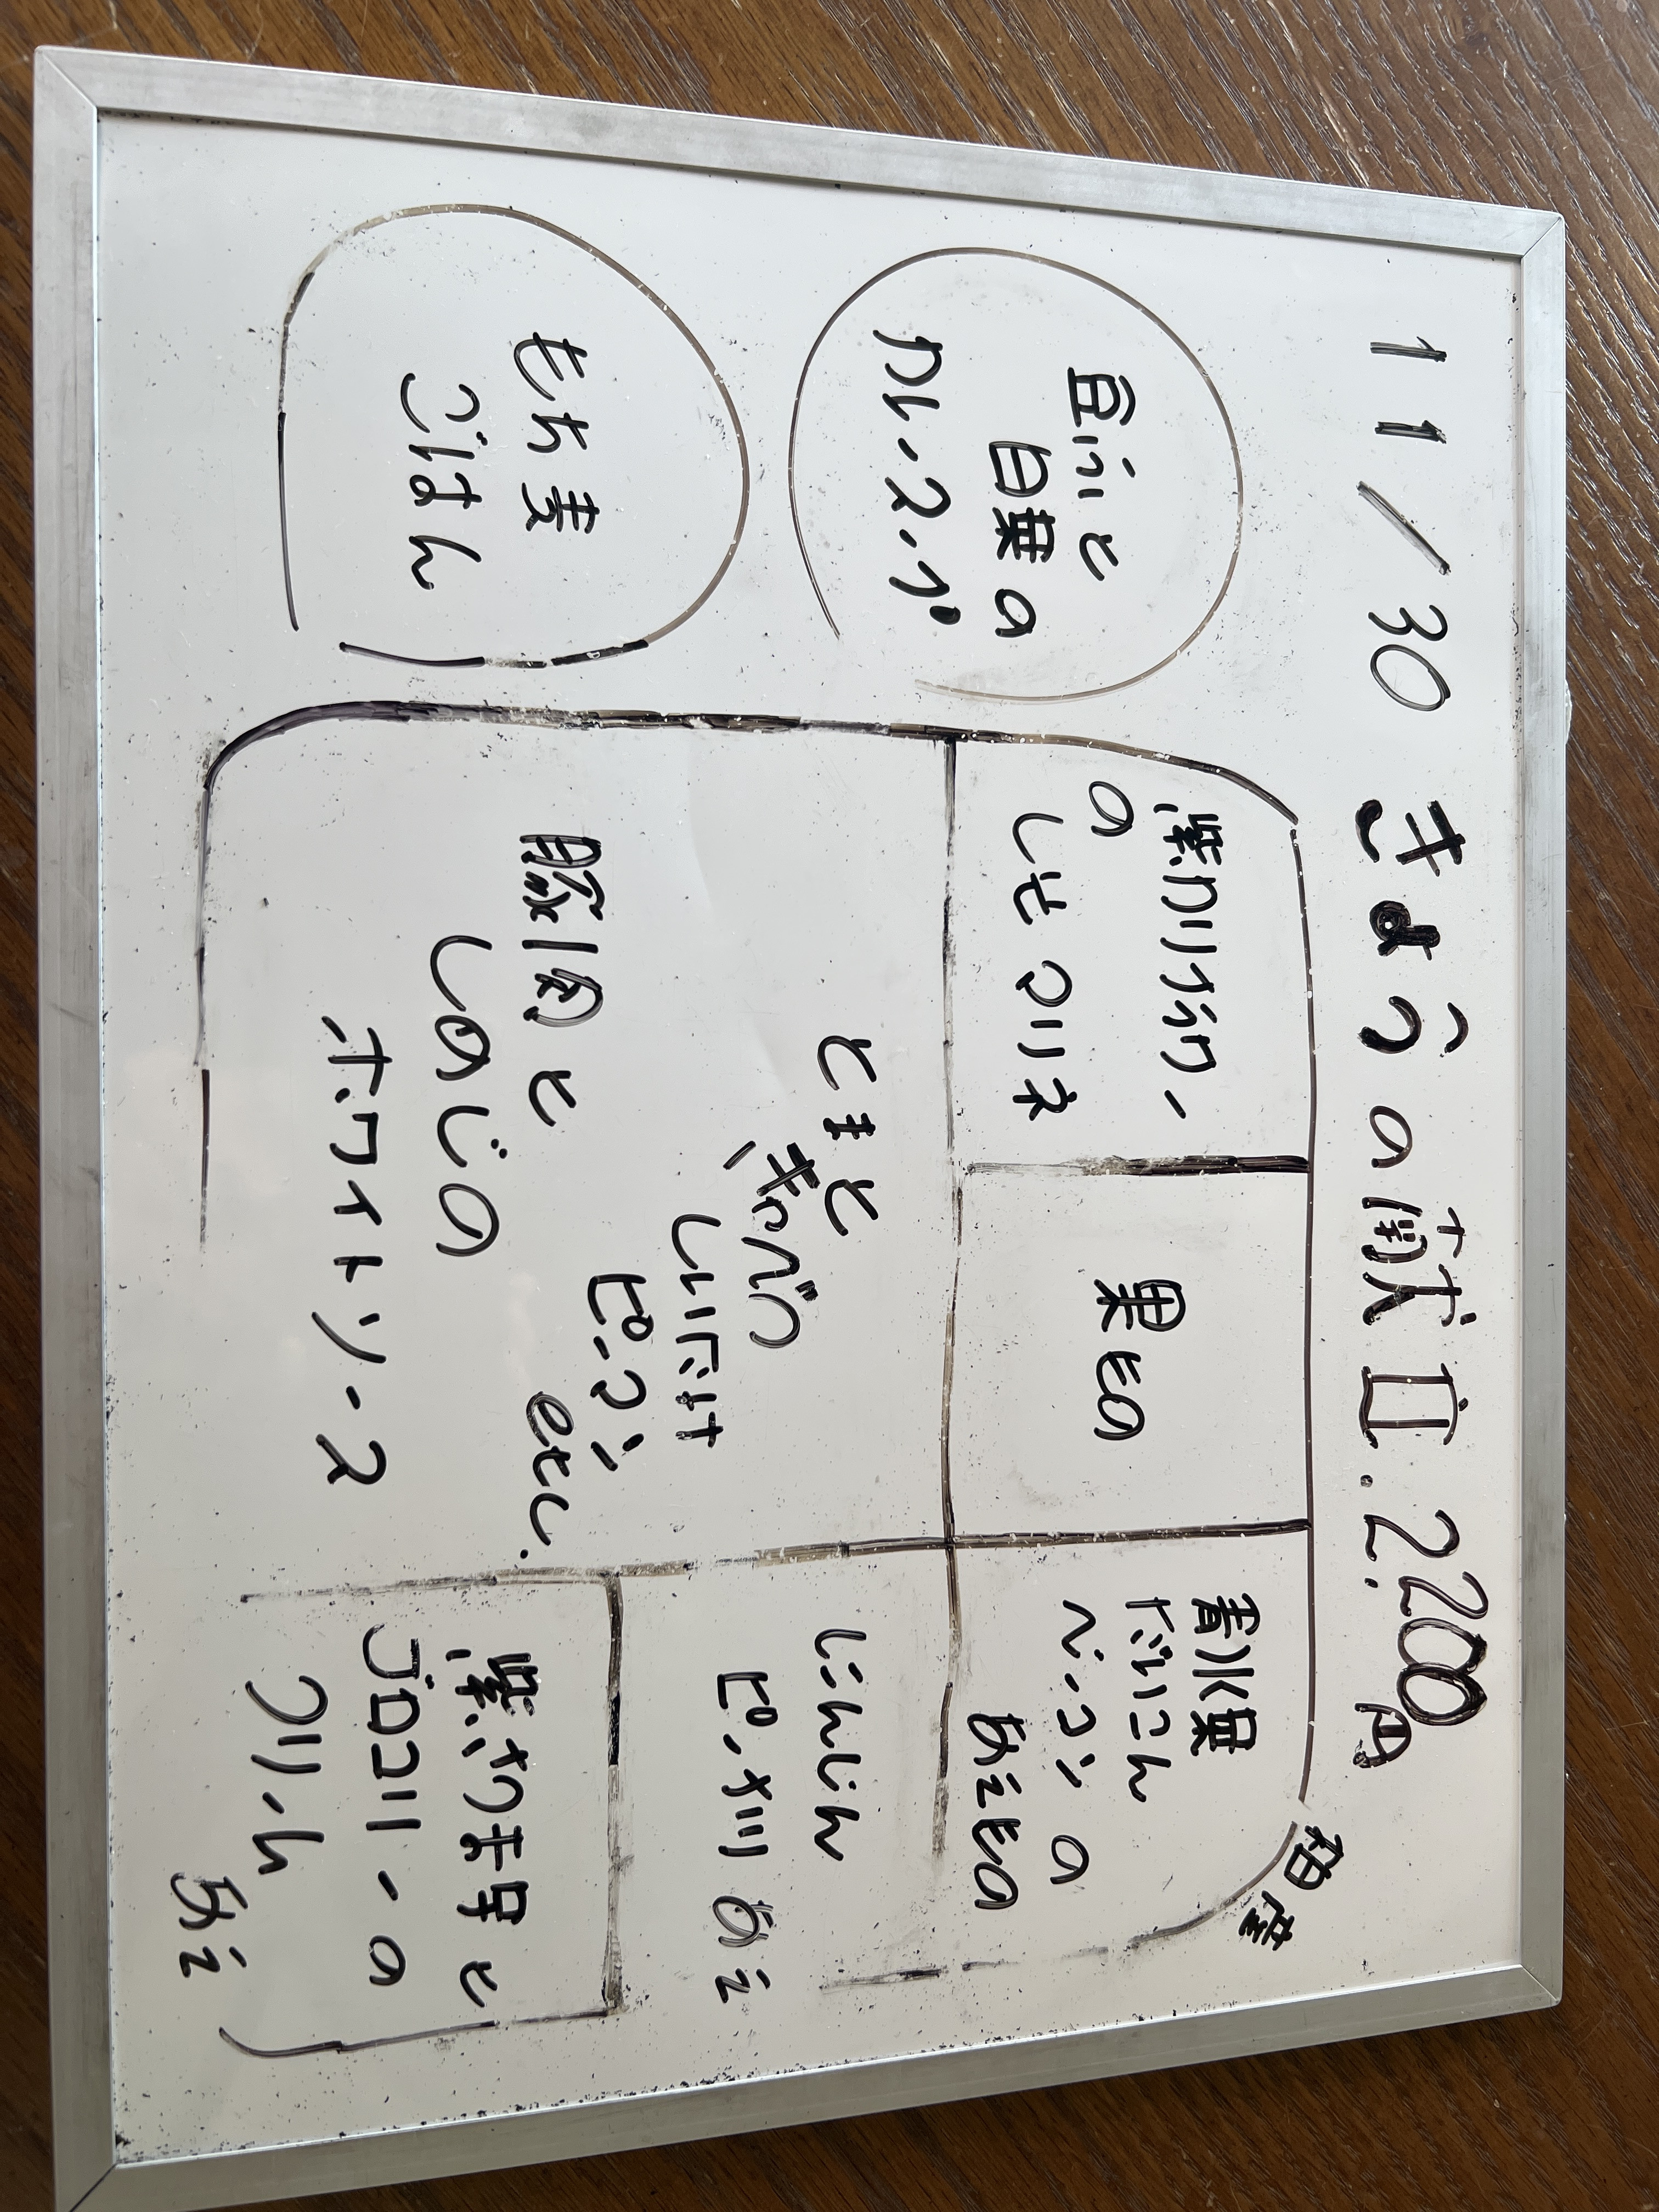 11/30 きょうの献立. 2.200円
紫カリフラワー
の
しそマリネ
果もの
青水菜
だいこん
ベーコンの
あえもの
豆ふと
白菜の
カレースープ
とまと
キャベツ
しいたけ
ピーマン
etc.
豚肉と
しめじの
ホワイトソース
にんじん
ピーナツあえ
もち麦
ごはん
紫さつま芋と
ブロコリーの
クリーム
あえ